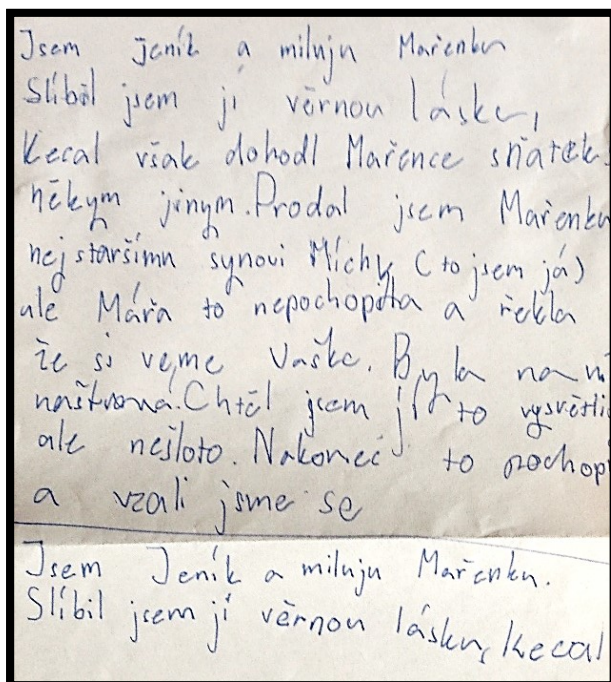 Jsem Jeník a miluju Mařenku
Slíbil jsem jí věrnou lásku,
Kecal však dohodl Mařence sňatek s
někym jinym. Prodal jsem Mařenku
nejstaršímu synovi Míchy (to jsem já)
ale Mářa to nepochopila a řekla
že si veme Vaška. Byla na m
naštvaná. Chtěl jsem jí to vysvětli
ale nešloto. Nakonec to pochop
a vzali jsme se
Jsem Jeník a miluju Mařenku.
Slíbil jsem jí věrnou lásku, Kecal